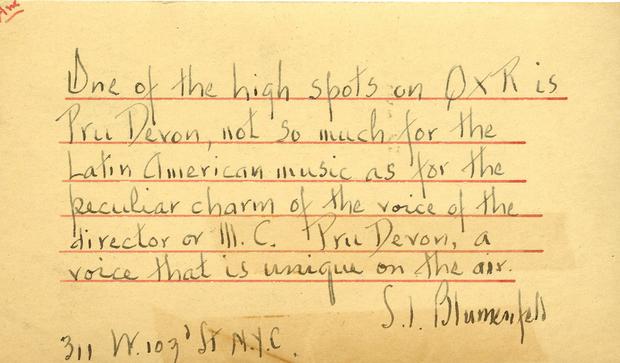 One of the high spots on QXR is
Pru Devon, not so much for the
Latin American music as for the
peculiar charm of the voice of the
director or M.C. Pru Devon, a
voice that is unique on the air.
S. I. Blumenfeld
311 W. 103ʳᵈ St N.Y.C.